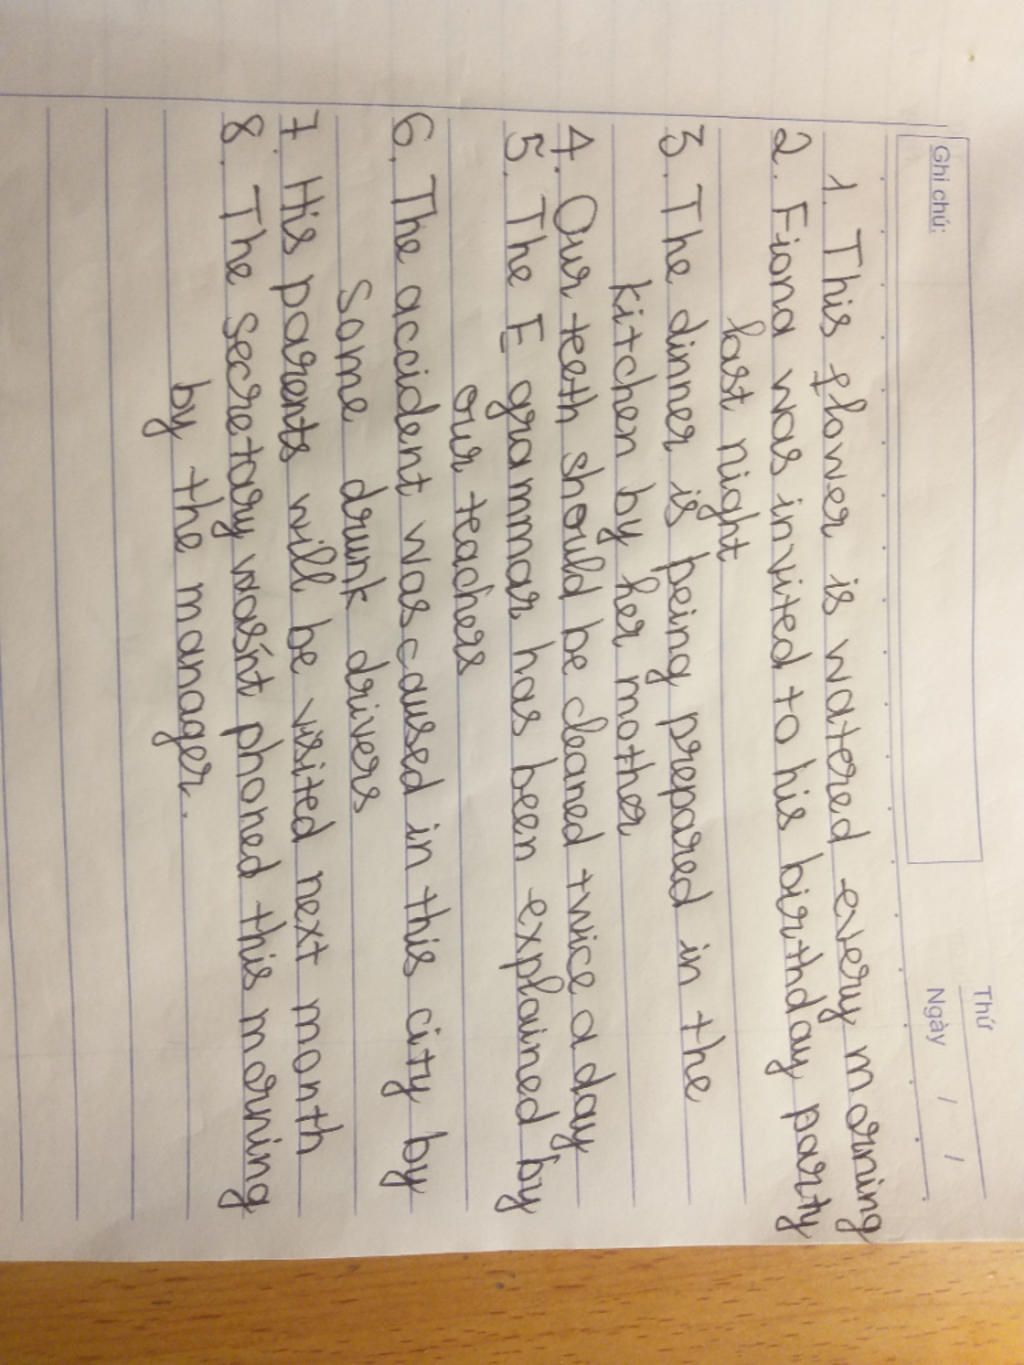 Thứ
Ghi chú:
Ngày / /
1. This flower is watered every morning
2. Fiona was invited to his birthday party
last night
3. The dinner is being prepared in the
kitchen by her mother
4. Our teeth should be cleaned twice a day
5. The E grammar has been explained by
our teachers
6. The accident was caused in this city by
some drunk drivers
7. His parents will be visited next month
8. The secretary wasn't phoned this morning
by the manager.